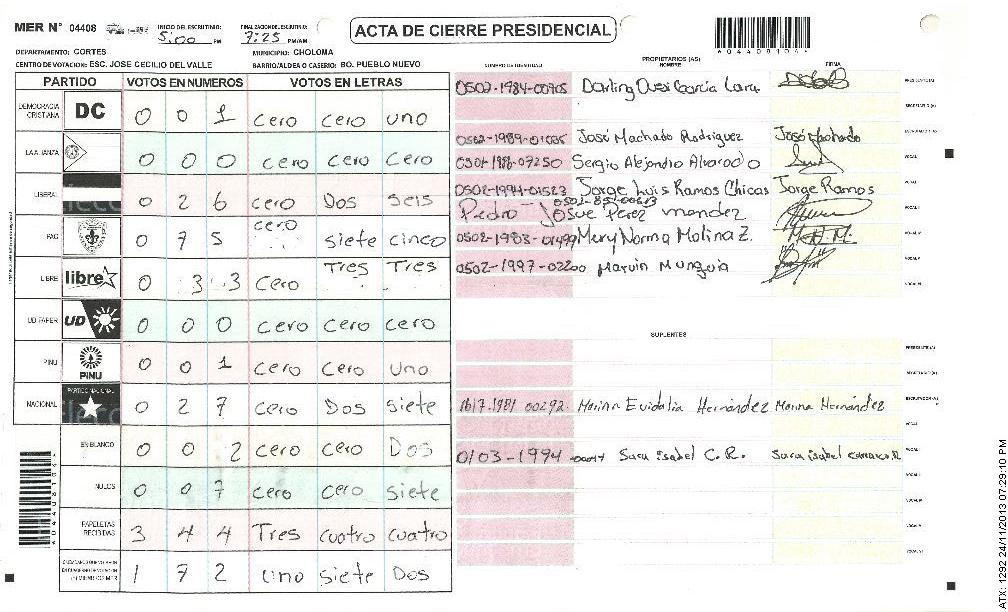 MER N° 04408 INICIO DEL ESCRUTINIO: 5:00 PM FINALIZACION DEL ESCRUTINIO: 7:25 PM/AM
ACTA DE CIERRE PRESIDENCIAL
DEPARTAMENTO: CORTES MUNICIPIO: CHOLOMA
CENTRO DE VOTACION: ESC. JOSE CECILIO DEL VALLE BARRIO/ALDEA O CASERIO: BO. PUEBLO NUEVO
PARTIDO VOTOS EN NUMEROS VOTOS EN LETRAS
DEMOCRACIA CRISTIANA DC 0 0 1 cero cero uno
LA ALIANZA 0 0 0 cero cero cero
LIBERAL 0 2 6 cero Dos seis
PAC 0 7 5 cero siete cinco
LIBRE libre 0 3 3 cero Tres Tres
UD FAPER UD 0 0 0 cero cero cero
PINU PINU 0 0 1 cero cero uno
NACIONAL PARTIDO NACIONAL 0 2 7 cero Dos siete
EN BLANCO 0 0 2 cero cero Dos
NULOS 0 0 7 cero cero siete
PAPELETAS RECIBIDAS 3 4 4 Tres cuatro cuatro
1 7 2 uno siete Dos
NUMERO DE IDENTIDAD PROPIETARIOS (AS) NOMBRE FIRMA
0502-1984-00905 Darling García Lara PRESIDENTE(A)
SECRETARIO (A)
0502-1989-01085 José Machado Rodriguez José Machado ESCRUTADOR (A)
0501-1986-07250 Sergio Alejandro Alvarado VOCAL I
0502-1994-01523 Jorge Luis Ramos Chicas Jorge Ramos
0502-85-00613
Pedro Josue Perez mendez
0502-1983-01499 Mery Norma Molina Z.
0502-1997-02200 Marvin Munguia
SUPLENTES
PRESIDENTE(A)
SECRETARIO (A)
1617.1981 00292. Marina Evidalia Hernández Marina Hernández ESCRUTADOR(A)
0103-1994-00047 Sara isabel C.R. Sara isabel
ATX: 1292 24/11/2013 07:29:10 PM